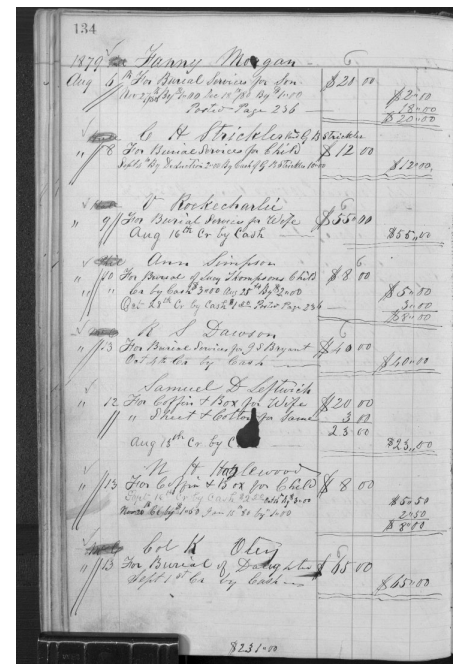 134
1879 Fanny Morgan
Aug 6th For Burial Services for Son $20 00
$2"00
Posted Page 236 18"00
$20"00
C H Strickler and G B Strickler
" 8 For Burial Services for Child $12 00
Sept 10th By Deduction 2.00 By Cash of G B Strickler 10.00 $12"00
V Rockecharlie
" 9 For Burial Services for Wife $55"00
Aug 16th Cr by Cash $55"00
Ann Simpson
" 10 For Burial of Lucy Thompsons Child $8 00
" Cr by Cash $3"00 Aug 25th By $2"00 $5"00
28th Cr by Cash Posted Page 236 3"00
$8"00
R S Dawson
" 13 For Burial Services for J S Bryant $40 00
Oct 4th Cr by Cash $40"00
Samuel D Leftwich
" 12 For Coffin + Box for Wife $20 00
" Sheet + Cotton for Same 3 00
23 00
Aug 15th Cr by C $23"00
N H Hazlewood
" 13 For Coffin + Box for Child $8 00
Sept 16th Cr by Cash $5"50
by 1"00 2"50
$8"00
Col K Otey
" 13 For Burial of Daughter $65 00
Sept 1st Cr by Cash $65"00
$231"00